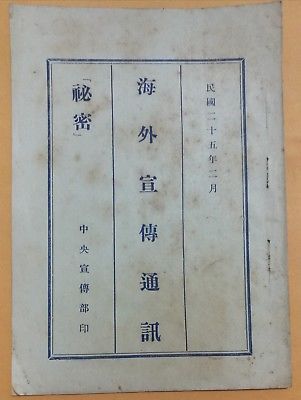 民國二十五年二月
海外宣傳通訊
「祕密」
中央宣傳部印